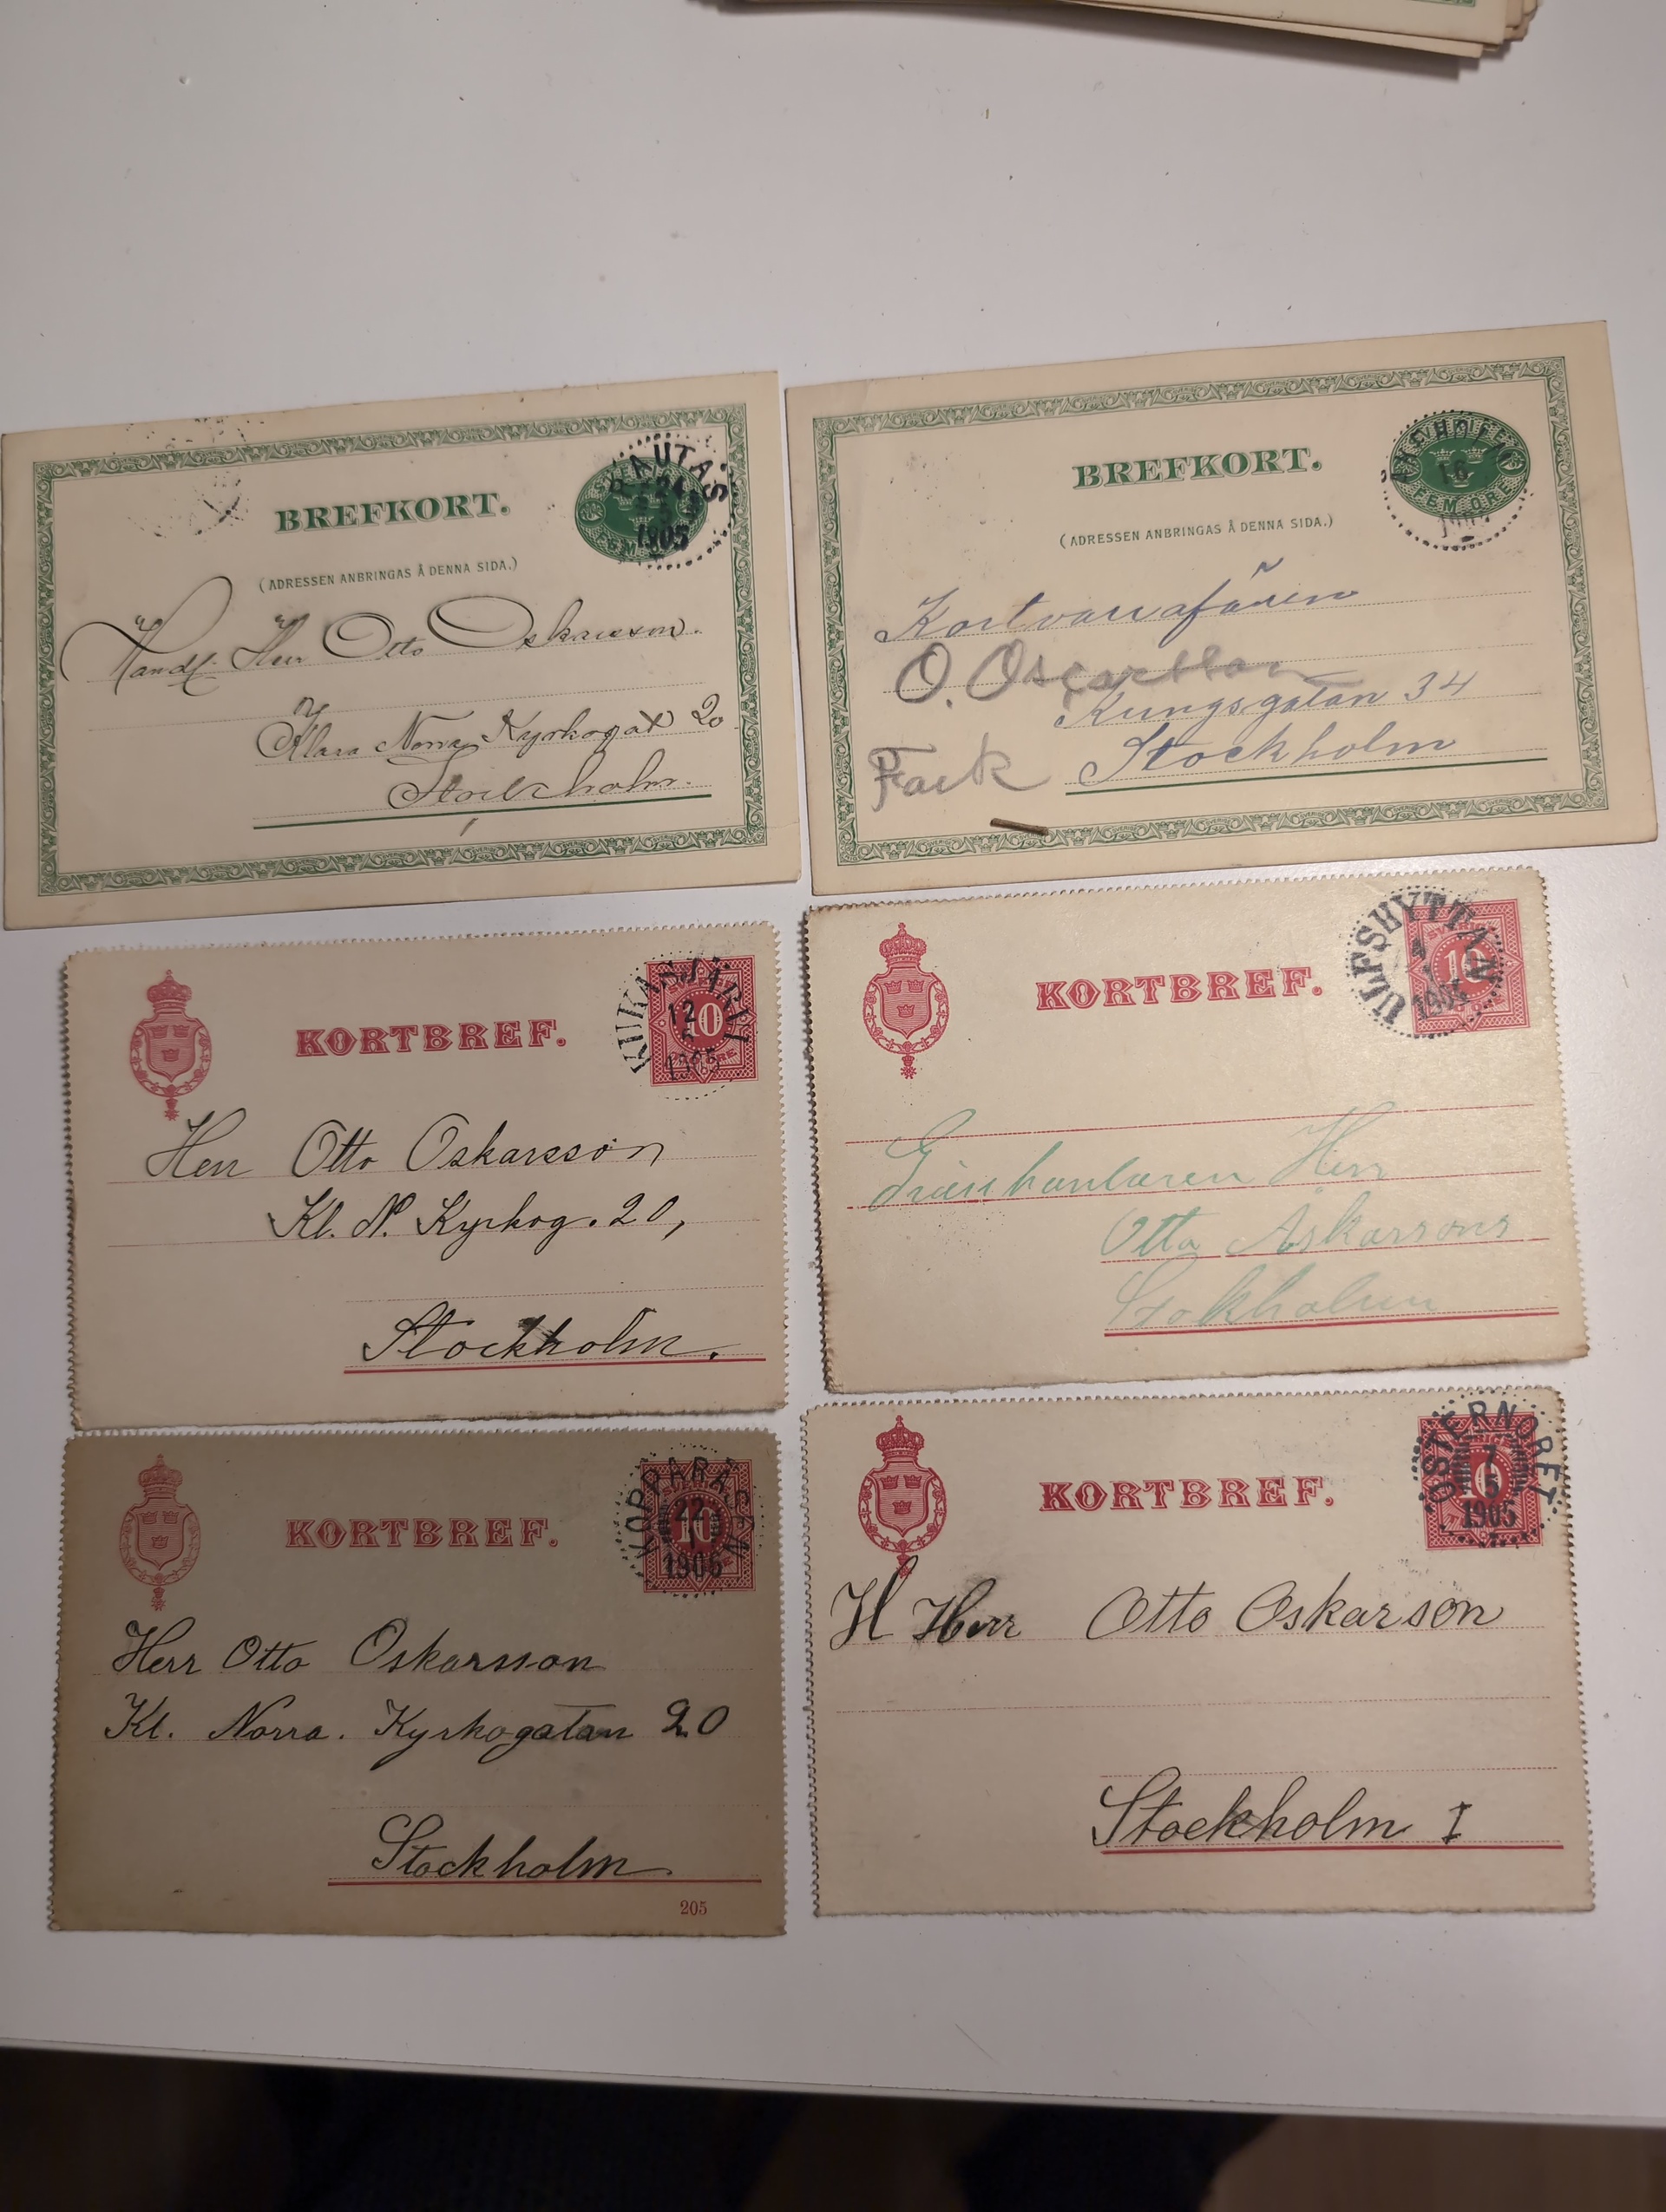 BREFKORT.
(ADRESSEN ANBRINGAS Å DENNA SIDA.)
RAUTAS
24
5
1905
Handl. Herr Otto Oskarsson.
Klara Norra Kyrkogat 20
Stockholm.
BREFKORT.
(ADRESSEN ANBRINGAS Å DENNA SIDA.)
FEM ÖRE
16
O. Oscarsson
Kungsgatan 34
Fack Stockholm
KORTBREF.
10
12
1905
Herr Otto Oskarsson
Kl. N. Kyrkog. 20,
Stockholm.
KORTBREF.
ULFSHYTTAN
10
Herr
Otto Askarssons
Stokholm
KORTBREF.
KOPPARÅSEN
10
22
1
1905
Herr Otto Oskarsson
Kl. Norra. Kyrkogatan 20
Stockholm
205
KORTBREF.
ÖSTERNORET
7
5
1905
H Herr Otto Oskarson
Stockholm I